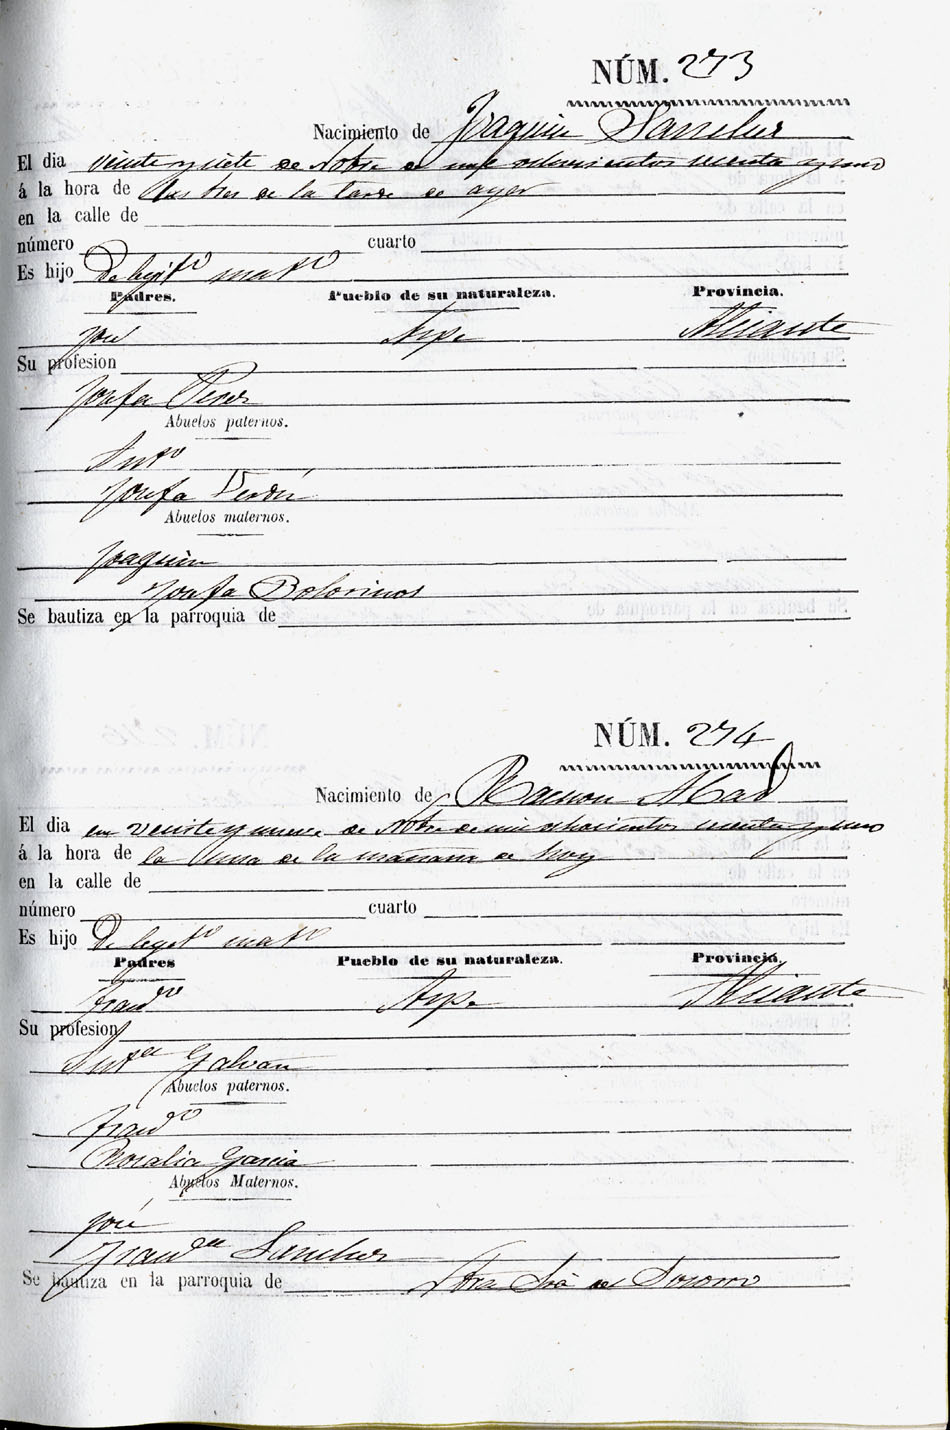 NÚM. 273
Nacimiento de Joaquin Sanchez
El dia veinte y siete de Nobre de mil ochocientos y uno
á la hora de las tres de la tarde de ayer
en la calle de
número cuarto
Es hijo De legit.º mat.º
Padres. Pueblo de su naturaleza. Provincia.
José Aspe Alicante
Su profesion
Josefa Perez
Abuelos paternos.
Ant.º
Josefa Verdú
Abuelos maternos.
Joaquin
Josefa Botorinos
Se bautiza en la parroquia de
NÚM. 274
Nacimiento de Ramon Mas
El dia en veinte y nueve de Nobre de mil ochocientos y uno
á la hora de la una de la mañana de hoy
en la calle de
número cuarto
Es hijo De legit.º mat.º
Padres Pueblo de su naturaleza. Provincia.
Fran.co Aspe Alicante
Su profesion
Ant.ª Galvañ
Abuelos paternos.
Fran.co
Rosalia Garcia
Abuelos Maternos.
José
Fran.ca Sanchez
Se bautiza en la parroquia de Ntra Srâ del Socorro